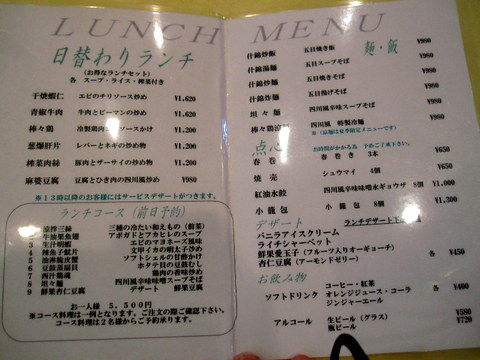 LUNCH MENU
日替わりランチ
(お得なランチセット)
各 スープ・ライス・搾菜付き
干焼蝦仁 エビのチリソース炒め ¥1,620
青椒牛肉 牛肉とピーマンの炒め ¥1,620
棒々鶏 冷製鶏肉のゴマソースかけ ¥1,200
葱爆肝片 レバーとネギの炒め物 ¥1,200
榨菜肉絲 豚肉とザーサイの炒め物 ¥1,200
麻婆豆腐 豆腐とひき肉の四川風炒め ¥980
※13時以降のお客様にはサービスデザートがつきます。
ランチコース (前日予約)
1 涼拌三絲 三種の冷たい和えもの (前菜)
2 牛油菜魚翅 アボガドとフカヒレのスープ
3 生汁明蝦 エビのマヨネーズ風味
4 辣魚子魷片 文甲イカの明太子炒め
5 油淋軟皮蟹 ソフトシェルの甘酢かけ
6 豆鼓蒸扇貝 ホタテ貝の豆鼓むし
7 西汁鶏塊 鶏肉の香味炒め
8 坦々麺 四川風辛味噌スープそば
9 鮮果杏仁豆腐 デザート 鮮果豆腐
お一人様 5,500円
※コース料理は一例となります。ご注文の際ご確認下さい。
コース料理は2名様からご予約承ります。
麺・飯
什錦炒飯 五目焼き飯 ¥980
什錦湯麺 五目スープそば ¥980
什錦炒麺 五目焼きそば ¥980
什錦炸麺 五目揚げそば ¥980
坦々麺 四川風辛味スープそば ¥980
棒々鶏涼麺 四川風 特製冷麺 ¥980
※(涼麺は夏季限定メニューです)
点心
お時間がかかる為 予めご了承下さい。
春巻 春巻き 3本 ¥650
焼売 シュウマイ 4個 ¥650
紅油水餃 四川風辛味味噌水ギョウザ 8個 ¥1,000
小籠包 小籠包 8個 ¥1,300
デザート
バニラアイスクリーム
ライチシャーベット
鮮果愛玉子 (フルーツ入りオーギョーチ)
杏仁豆腐 (アーモンドゼリー) 各 ¥450
お飲み物
ソフトドリンク コーヒー・紅茶
オレンジジュース・コーラ 各 ¥400
ジンジャーエール
アルコール 生ビール (グラス) ¥580
瓶ビール ¥720